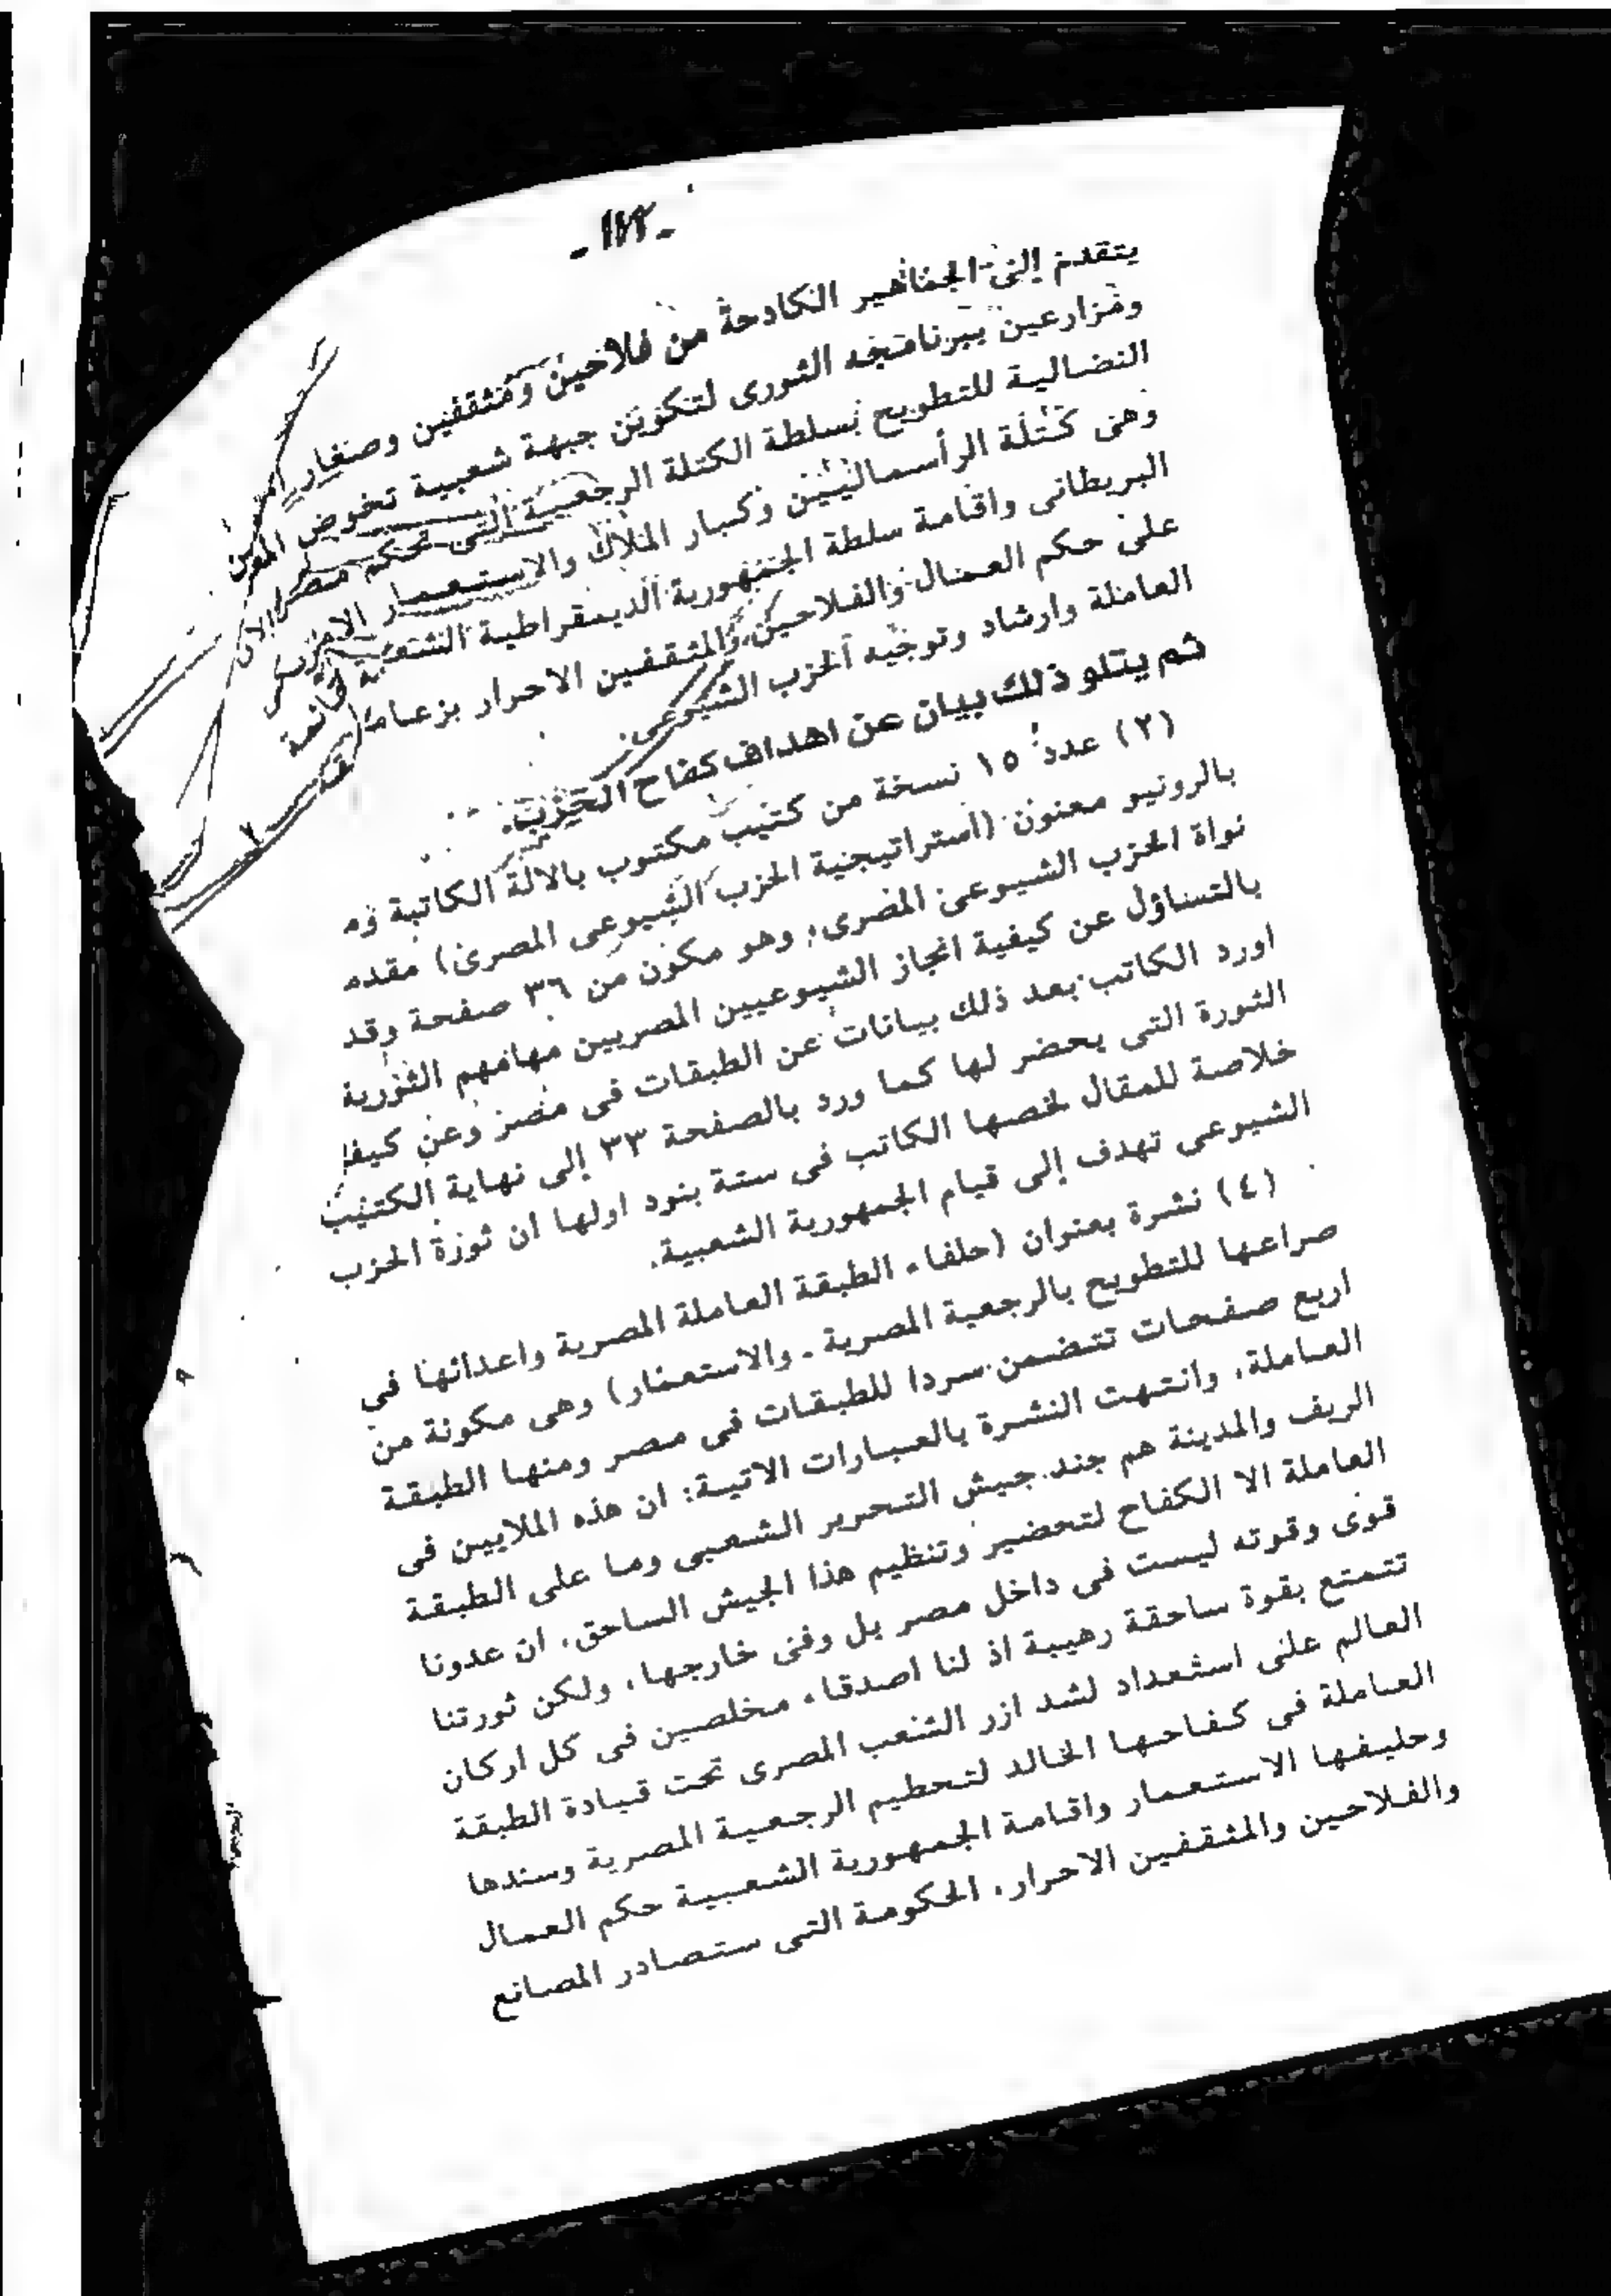 يتقدم إلى الجماهير الكادحة من فلاحين ومثقفين وصغار
ومزارعين ببرنامجه الثورى لتكوين جبهة شعبية تخوض
النضالية للتطويح بسلطة الكتلة الرجعية التى تحكم مصر الان
وهى كتلة الرأسماليين وكبار الملاك والاستعمار
البريطانى واقامة سلطة الجمهورية الديمقراطية الشعبية قائمة
على حكم العمال والفلاحين والمثقفين الاحرار بزعامة
العاملة وارشاد وتوجيه الحزب الشيوعى.
ثم يتلو ذلك بيان عن اهداف كفاح الحزب.
(٢) عدد ١٥ نسخة من كتيب مكتوب بالالة الكاتبة
بالرونيو معنون (استراتيجية الحزب الشيوعى المصرى) مقدمه
نواة الحزب الشيوعى المصرى، وهو مكون من ٣٦ صفحة وقد
بالتساؤل عن كيفية انجاز الشيوعيين المصريين مهامهم الثورية
اورد الكاتب بعد ذلك بيانات عن الطبقات فى مصر وعن كيف
الثورة التى يحضر لها كما ورد بالصفحة ٣٣ إلى نهاية الكتيب
خلاصة للمقال لخصها الكاتب فى ستة بنود اولها ان ثورة الحزب
الشيوعى تهدف إلى قيام الجمهورية الشعبية.
(٤) نشرة بعنوان (حلفاء الطبقة العاملة المصرية واعدائها فى
صراعها للتطويح بالرجعية المصرية - والاستعمار) وهى مكونة من
اربع صفحات تتضمن سردا للطبقات فى مصر ومنها الطبقة
العاملة. وانتهت النشرة بالعبارات الاتية: ان هذه الملايين فى
الريف والمدينة هم جند جيش التحرير الشعبى وما على الطبقة
العاملة الا الكفاح لتحضير وتنظيم هذا الجيش الساحق. ان عدونا
قوى وقوته ليست فى داخل مصر بل وفى خارجها. ولكن ثورتنا
تتمتع بقوة ساحقة رهيبة اذ لنا اصدقاء مخلصين فى كل اركان
العالم على استعداد لشد ازر الشعب المصرى تحت قيادة الطبقة
العاملة فى كفاحها الخالد لتحطيم الرجعية المصرية وسندها
وحليفها الاستعمار واقامة الجمهورية الشعبية حكم العمال
والفلاحين والمثقفين الاحرار. الحكومة التى ستصادر المصانع